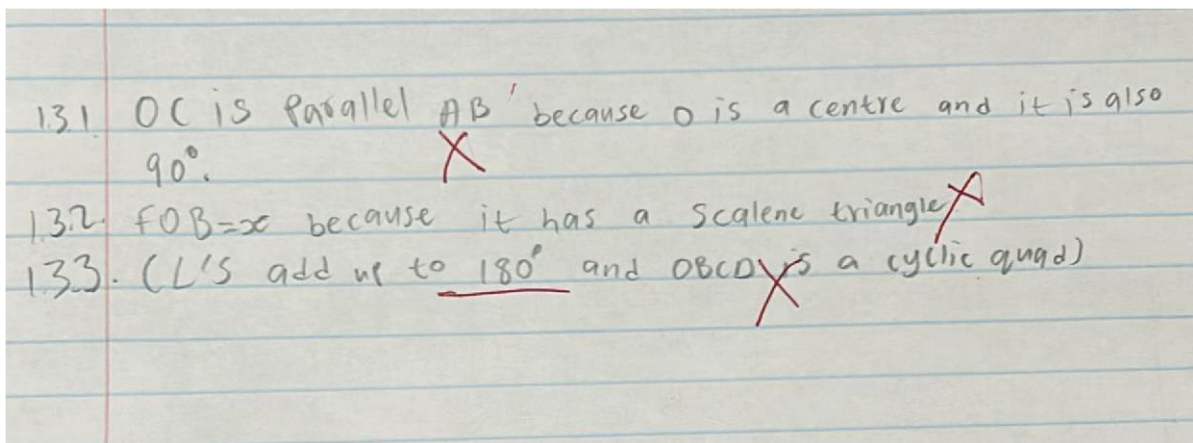 1.3.1. OC is Parallel AB' because O is a centre and it is also
90°.
1.3.2. FOB=x because it has a scalene triangle
1.3.3. (L'S add up to 180° and OBCD is a cyclic quad)